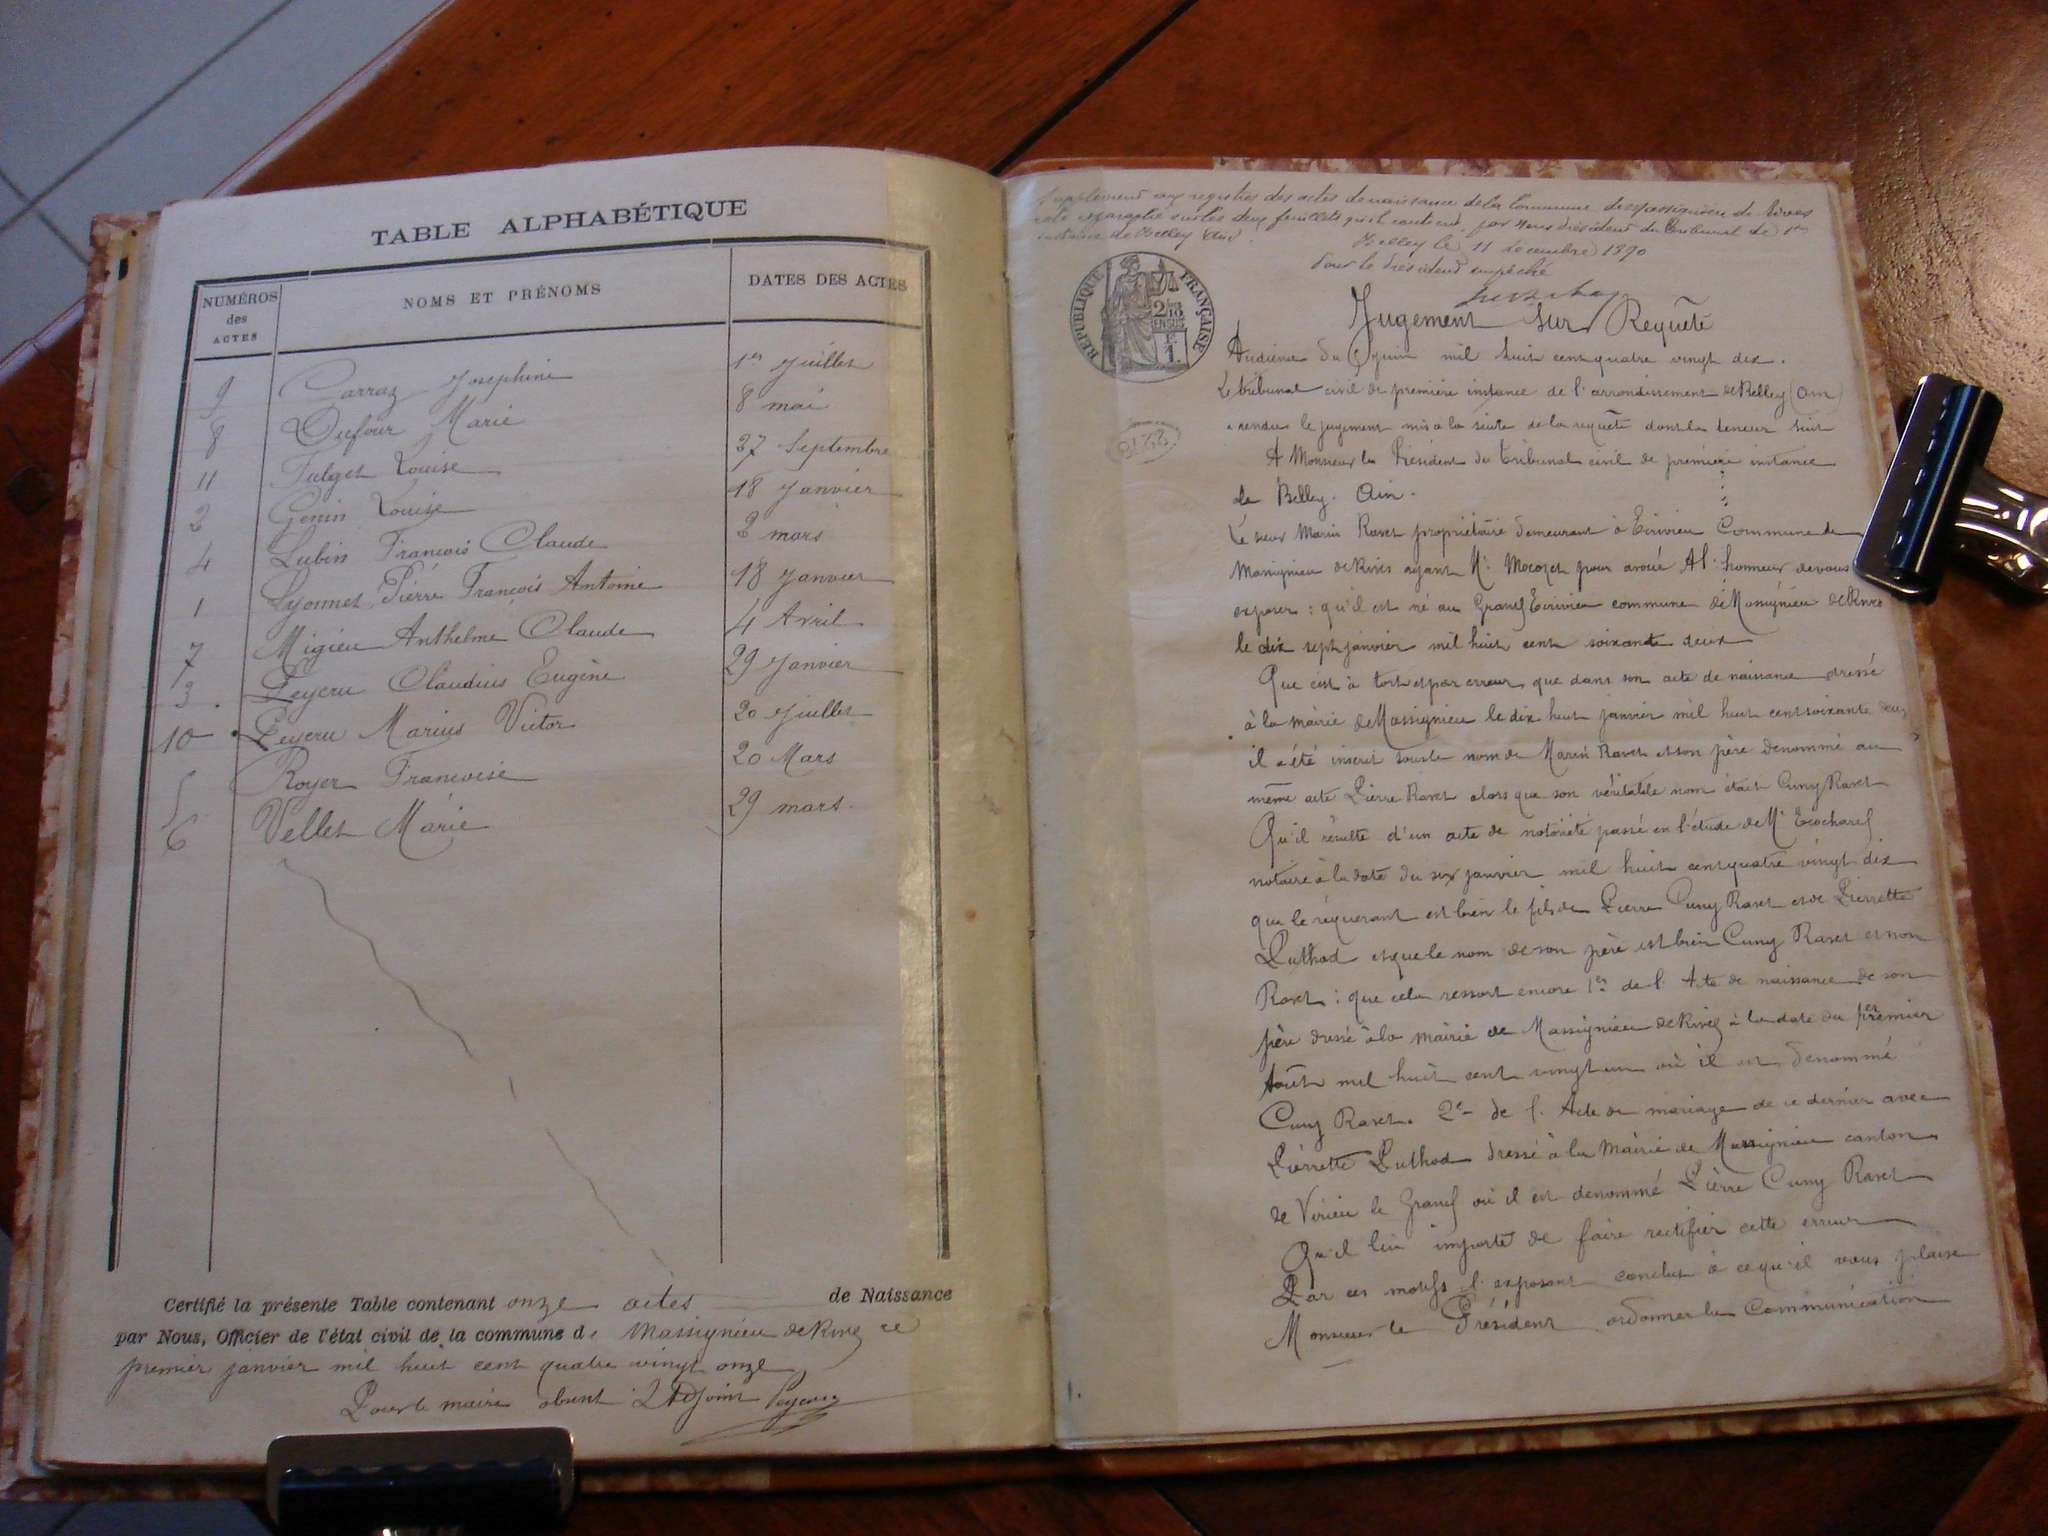 TABLE ALPHABÉTIQUE
NUMÉROS des ACTES NOMS ET PRÉNOMS DATES DES ACTES
9 Carraz Josephine 1er Juillet
8 Dufour Marie 8 mai
11 Falget Louise 27 Septembre
2 Genin Louise 18 Janvier
4 Lubin François Claude 2 mars
1 Lyonnet Pierre François Antoine 18 Janvier
7 Migieu Anthelme Claude 4 Avril
3 Peyeru Claudius Eugène 29 Janvier
10 Peyeru Marius Victor 20 Juillet
5 Royer Francoise 20 Mars
6 Vellet Marie 29 mars
Certifié la présente Table contenant onze actes de Naissance
par Nous, Officier de l'état civil de la commune de Massignieu de Rives ce
premier janvier mil huit cent quatre vingt onze
Pour le maire absent L'Adjoint
Supplément aux registres des actes de naissance de la Commune de Massignieu de Rives
coté et paraphé sur les deux feuillets qu'il contient, par Nous Président du Tribunal de 1re
instance de Belley Ain.
Belley le 11 décembre 1890
Pour le Président empêché
RÉPUBLIQUE FRANÇAISE
2/10 EN SUS
1 F
Jugement sur Requête
Audience du 6 juin mil huit cent quatre vingt dix.
Le tribunal civil de première instance de l'arrondissement de Belley (Ain)
a rendu le jugement mis a la suite de la requête dont la teneur suit
A Monsieur le Président du Tribunal civil de première instance
de Belley. Ain.
Le sieur Marin Ravet propriétaire demeurant à Ecrivieu Commune de
Massignieu de Rives ayant Me Mocozet pour avoué A l'honneur de vous
exposer : qu'il est né au Grand Ecrivieu commune de Massignieu de Rives
le dix sept janvier mil huit cent soixante deux
Que c'est à tort et par erreur que dans son acte de naissance dressé
à la mairie de Massignieu le dix huit janvier mil huit cent soixante deux
il a été inscrit sous le nom de Marin Ravet et son père denommé au
même acte Pierre Ravet alors que son véritable nom était Cuny Ravet
Qu'il résulte d'un acte de notoriété passé en l'étude de Me Ecochard
notaire à la date du six janvier mil huit cent quatre vingt dix
que le réquerant est bien le fils de Pierre Cuny Ravet et de Pierrette
Puthod et que le nom de son père est bien Cuny Ravet et non
Ravet : que cela ressort encore 1er de l'Acte de naissance de son
père dressé à la mairie de Massignieu de Rives à la date du premier
Août mil huit cent vingt un où il est denommé
Cuny Ravet. 2e de l'Acte de mariage de ce dernier avec
Pierrette Puthod dressé à la Mairie de Massignieu canton
de Virieu le Grand où il est denommé Pierre Cuny Ravet
Qu'il lui importe de faire rectifier cette erreur
Par ces motifs l'exposant conclut à ce qu'il vous plaise
Monsieur le Président ordonner la Communication